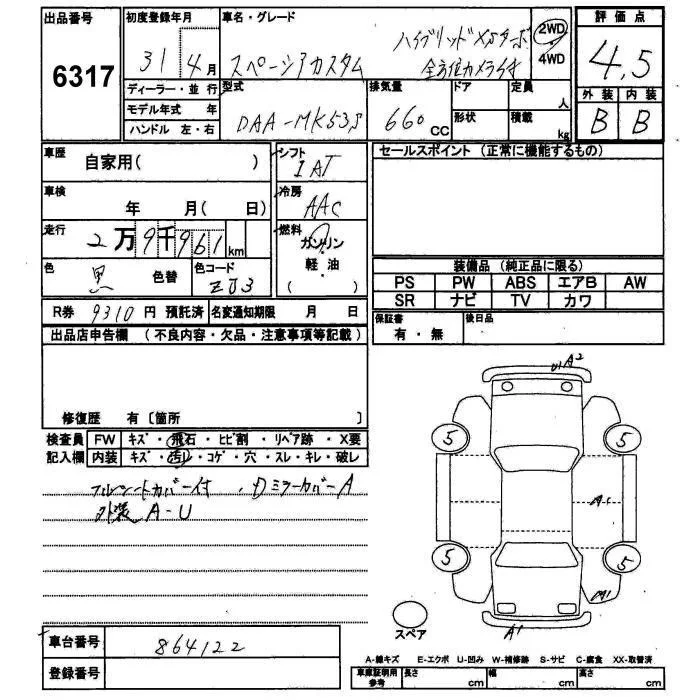 出品番号
6317
初度登録年月
31 4月
車名・グレード
スペーシアカスタム
ハイブリッドXSターボ
全方位カメラ付
2WD
・
4WD
評価点
4.5
外装 内装
B B
ディーラー・並行
モデル年式 年
ハンドル 左・右
型式
DAA-MK53S
排気量
660 CC
ドア
形状
定員
人
積載
kg
車歴
自家用( )
シフト
IAT
車検
年 月( 日)
冷房
AAC
走行
2万9千961km
燃料
ガソリン
軽・油
( )
色
黒
色替
色コード
ZJ3
R券 9310円 預託済
名変通知期限 月 日
セールスポイント (正常に機能するもの)
装備品 (純正品に限る)
PS PW ABS エアB AW
SR ナビ TV カワ
保証書
有・無
後日品
出品店申告欄 (不良内容・欠品・注意事項等記載)
修復歴 有〔箇所 〕
検査員 FW キズ・飛石・ヒビ割・リペア跡・X要
記入欄 内装 キズ・汚れ・コゲ・穴・スレ・キレ・破レ
フルシートカバー付 ・Dミラーカバー A
外装 A-U
A2
5
5
A1
5
5
A1
A1
スペア
車台番号
864122
登録番号
A-線キズ E-エクボ U-凹み W-補修跡 S-サビ C-腐食 XX-取替済
車庫証明用
参考
長さ cm
幅 cm
高さ cm